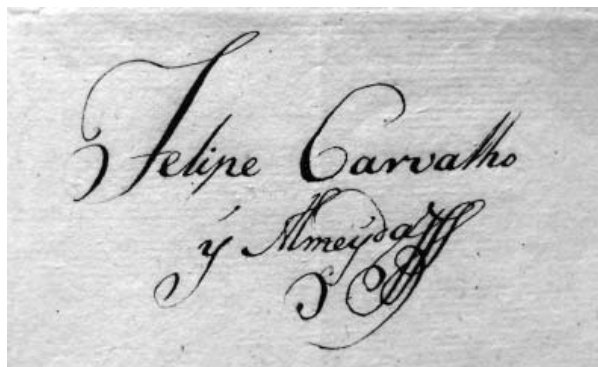 Felipe Carvalho
y Almeyda